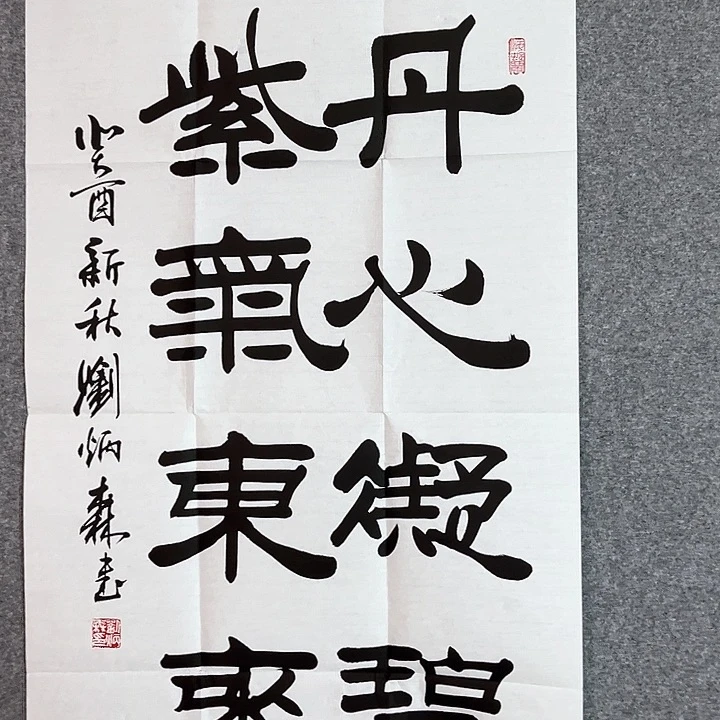 丹心凝碧
紫氣東來
癸酉新秋劉炳森書